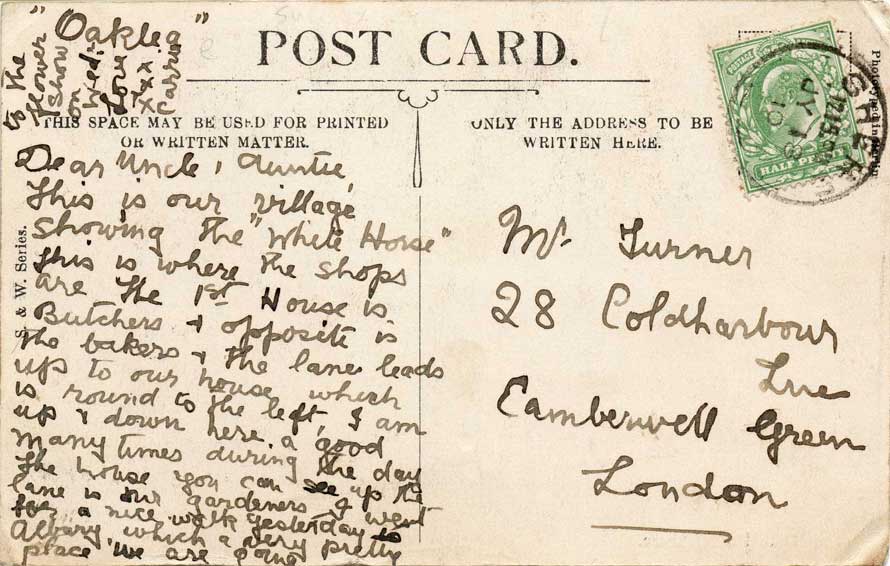 POST CARD.
THIS SPACE MAY BE USED FOR PRINTED
OR WRITTEN MATTER.
ONLY THE ADDRESS TO BE
WRITTEN HERE.
"Oaklea"
Dear Uncle, Auntie,
This is our village
showing the "White Horse"
This is where the shops
are The 1st House is
Butchers & opposite is
the bakers & the lane leads
up to our house which
is round to the left, I am
up & down here a good
many times during the day
The house you can see up the
lane is our gardeners I went
for a nice walk yesterday to
Albury which a very pretty
place we are going
to the
flower
Show
on Wed:
Love
xxx
Carrie
Mr. Turner
28 Coldharbour
Lne
Camberwell Green
London
S. & W. Series.
HALF PENNY
JY 18
10